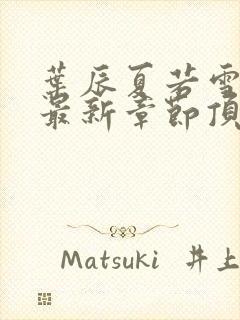 葉辰夏若雪
最新章節頂
Matsuki 井上